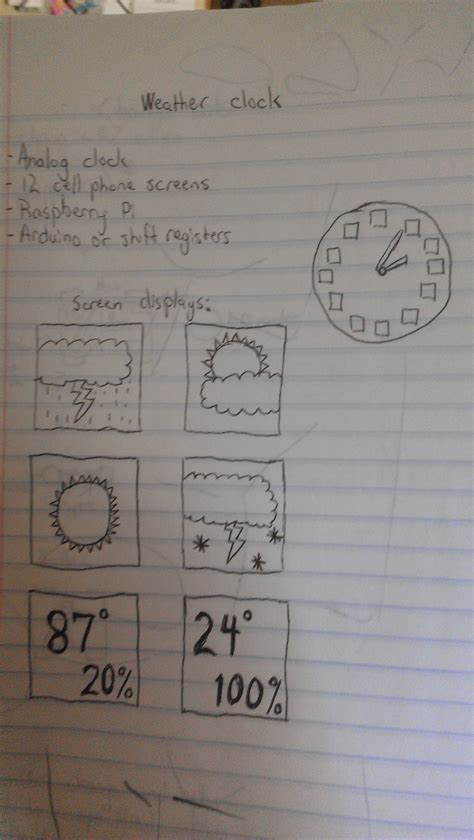 Weather clock
- Analog clock
- 12 cell phone screens
- Raspberry Pi
- Arduino or shift registers
Screen displays:
87°
20%
24°
100%